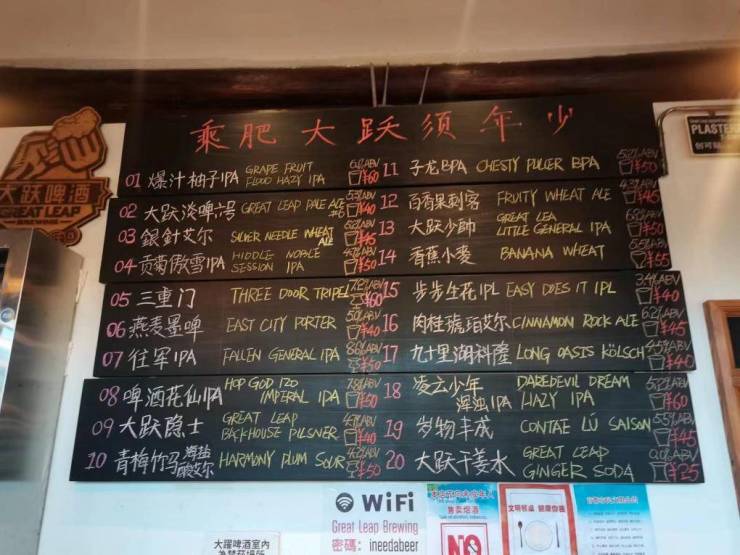 乘肥大跃须年少
01 爆汁柚子IPA GRAPE FRUIT FLOOD HAZY IPA ¥60
02 大跃淡啤六号 GREAT LEAP PALE ALE #6 ¥40
03 銀針艾尔 SILVER NEEDLE WHEAT ALE ¥45
04 贡菊傲雪IPA HIDDLE NOBLE SESSION IPA ¥50
05 三重门 THREE DOOR TRIPEL ¥60
06 燕麦墨啤 EAST CITY PORTER ¥40
07 往军IPA FALLEN GENERAL IPA ¥50
08 啤酒花仙IPA HOP GOD 120 IMPERIAL IPA ¥60
09 大跃隐士 GREAT LEAP BACKHOUSE PILSNER ¥40
10 青梅竹马海盐酸艾尔 HARMONY PLUM SOUR ¥50
11 子龙BPA CHESTY PULLER BPA ¥50
12 百香果刺客 FRUITY WHEAT ALE ¥45
13 大跃少帥 GREAT LEA LITTLE GENERAL IPA ¥50
14 香蕉小麦 BANANA WHEAT ¥55
15 步步生花IPL EASY DOES IT IPL 3.4%ABV ¥40
16 肉桂琥珀艾尔 CINNAMON ROCK ALE ¥45
17 九十里湖科隆 LONG OASIS KÖLSCH ¥40
18 凌云少年浑浊IPA DAREDEVIL DREAM HAZY IPA ¥60
19 岁物丰成 CONTAE LÚ SAISON ¥45
20 大跃干姜水 GREAT LEAP GINGER SODA ¥25
大跃啤酒
GREAT LEAP
BREWING
PLASTE
WiFi
Great Leap Brewing
密碼：ineedabeer
大躍啤酒室內
售卖烟酒
NO
文明餐桌 健康你我